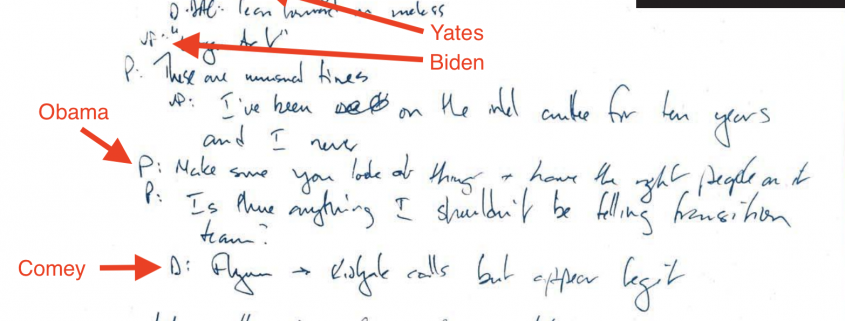 D-DAG: lean forward on
Yates
VP: "Logan Act"
Biden
P: These are unusual times
VP: I've been on the intel cmttee for ten years
Obama
and I never
P: Make sure you look at things + have the right people on it
P: Is there anything I shouldn't be telling transition
team?
Comey
D: Flynn → Kislyak calls but appear legit